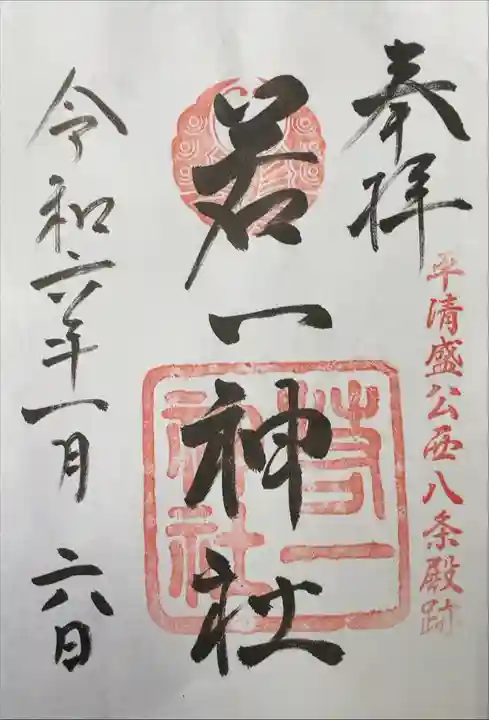 奉拝
平清盛公西八条殿跡
若一神社
若一神社
令和六年一月六日